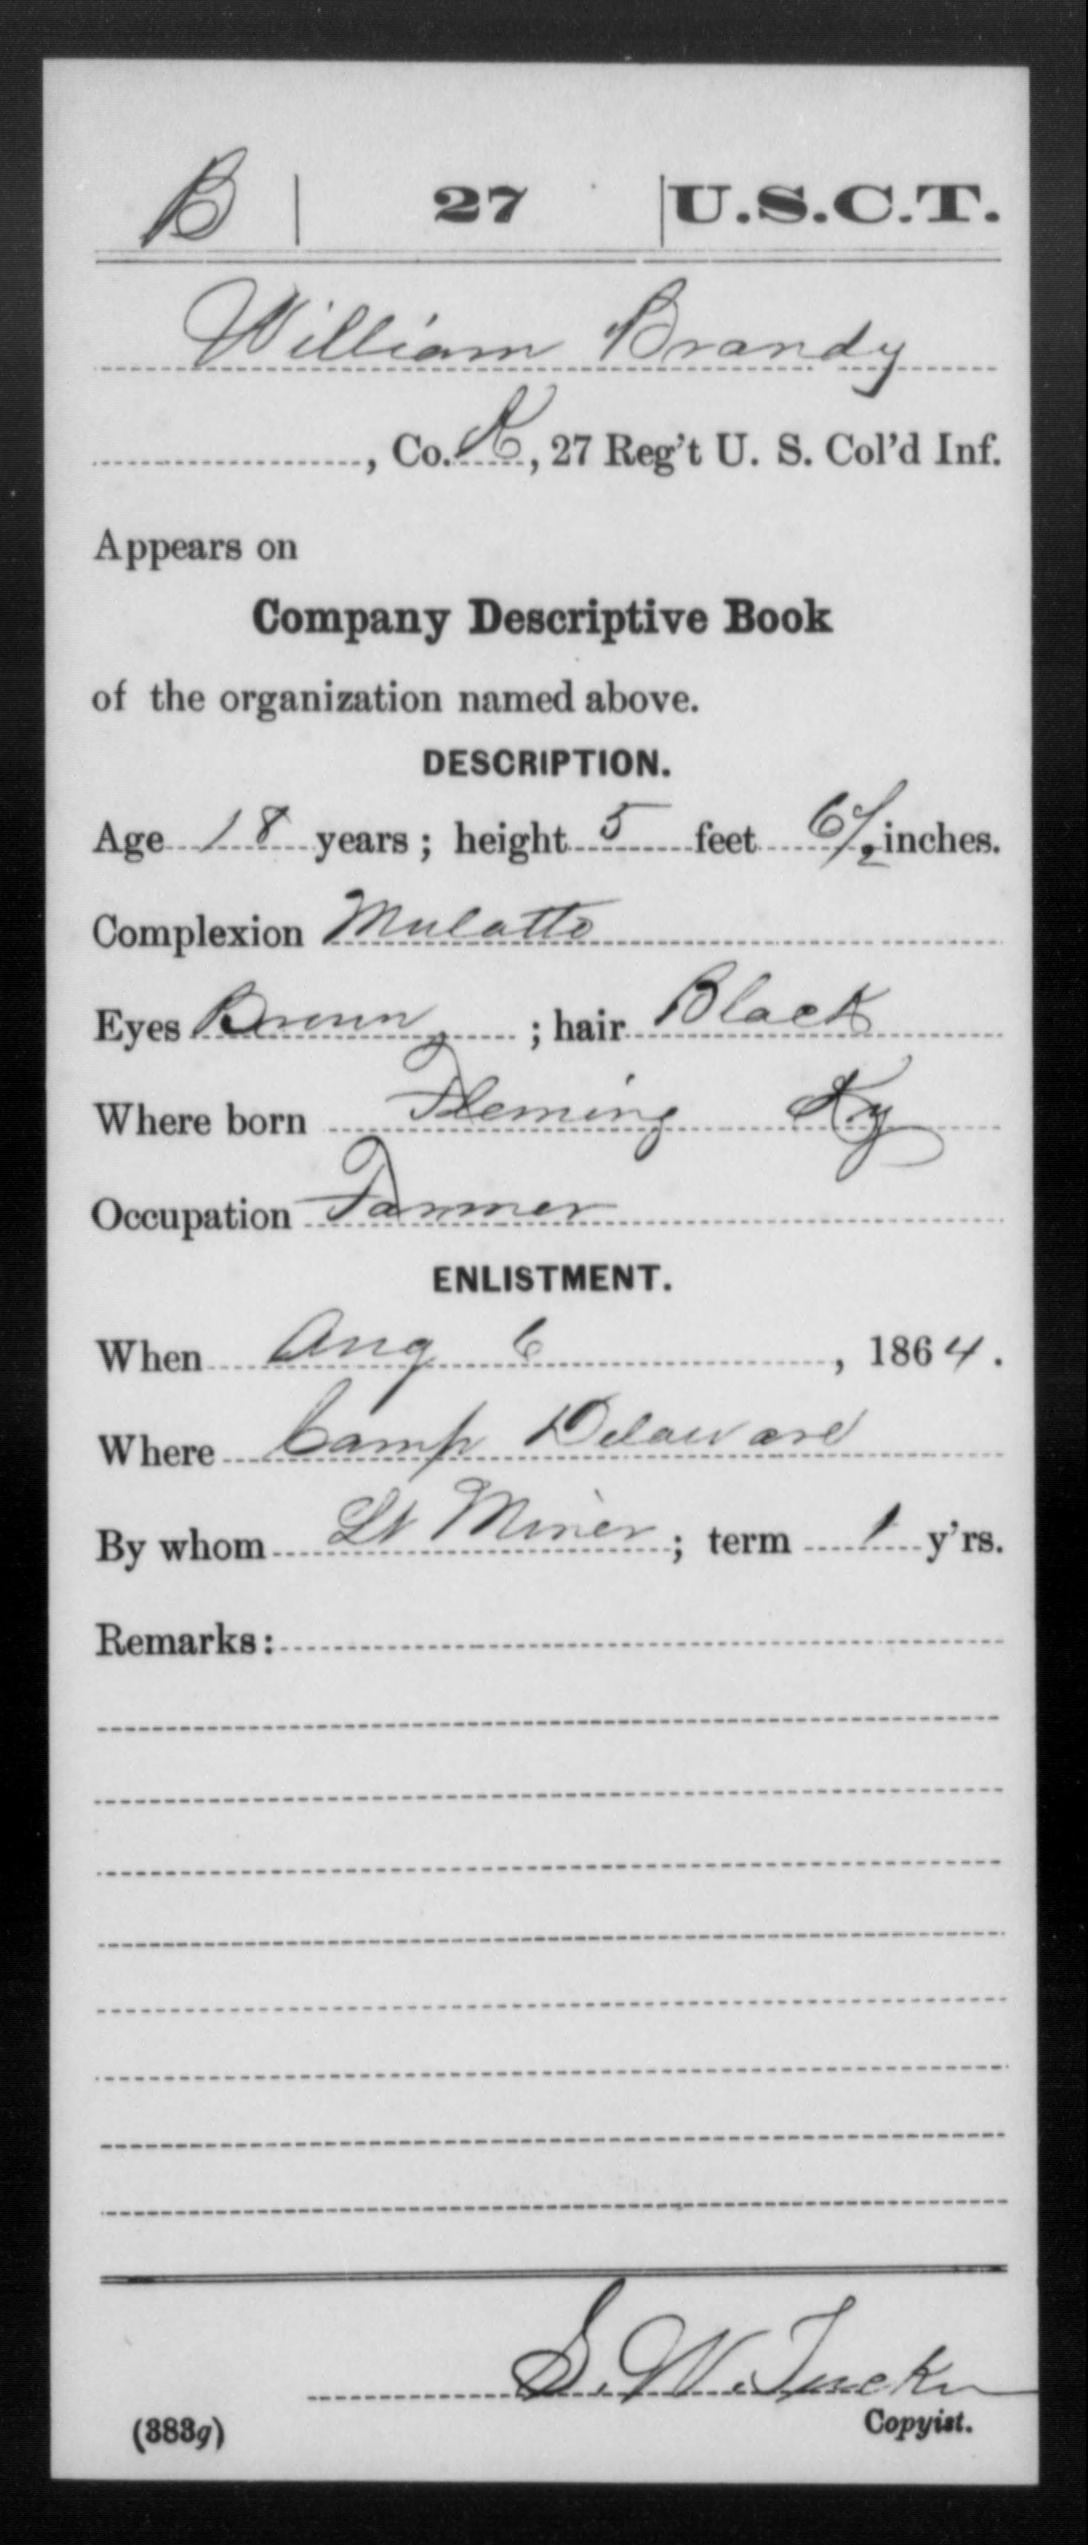 B | 27 | U.S.C.T.
William Brandy
, Co. K, 27 Reg't U. S. Col'd Inf.
Appears on
Company Descriptive Book
of the organization named above.
DESCRIPTION.
Age 18 years; height 5 feet 6 1/2 inches.
Complexion Mulatto
Eyes Brown; hair Black
Where born Fleming Ky
Occupation Farmer
ENLISTMENT.
When Aug 6, 1864.
Where Camp Delaware
By whom Lt Miner; term 1 y'rs.
Remarks:
S. W. Tucker
(383g) Copyist.